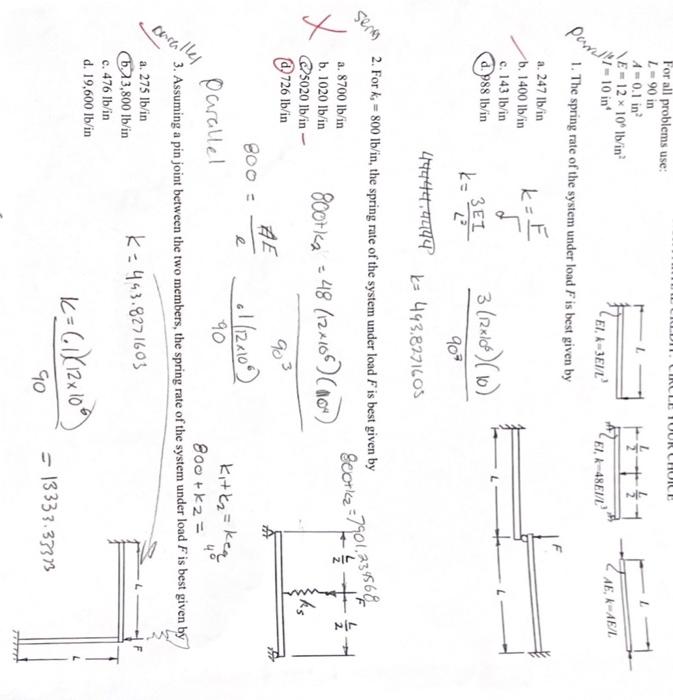 For all problems use:
L = 90 in
A = 0.1 in²
E = 12 × 10⁶ lb/in²
I = 10 in⁴
L
EI, k=3EI/L³
L/2 L/2
EI, k=48EI/L³
L
AE, k=AE/L
parallel
1. The spring rate of the system under load F is best given by
a. 247 lb/in
b. 1400 lb/in
c. 143 lb/in
d. 988 lb/in
k = F
k = 3EI / L³
3(12x10⁶)(10) / 90³
k = 493.8271605
F
L
L
series
2. For kₛ = 800 lb/in, the spring rate of the system under load F is best given by
a. 8700 lb/in
b. 1020 lb/in
c. 5020 lb/in
d. 726 lb/in
800+k₂ = 7901.234568
800+k₂ = 48(12x10⁶)(10) / 90³
800 = AE / l
.1(12x10⁶) / 90
k₁+k₂ = keq
800+k2 =
F
L/2 L/2
kₛ
parallel
parallel
3. Assuming a pin joint between the two members, the spring rate of the system under load F is best given by
a. 275 lb/in
b. 13,800 lb/in
c. 476 lb/in
d. 19,600 lb/in
k = 493.8271605
k = (.1)(12x10⁶) / 90 = 13333.33333
L
F
L